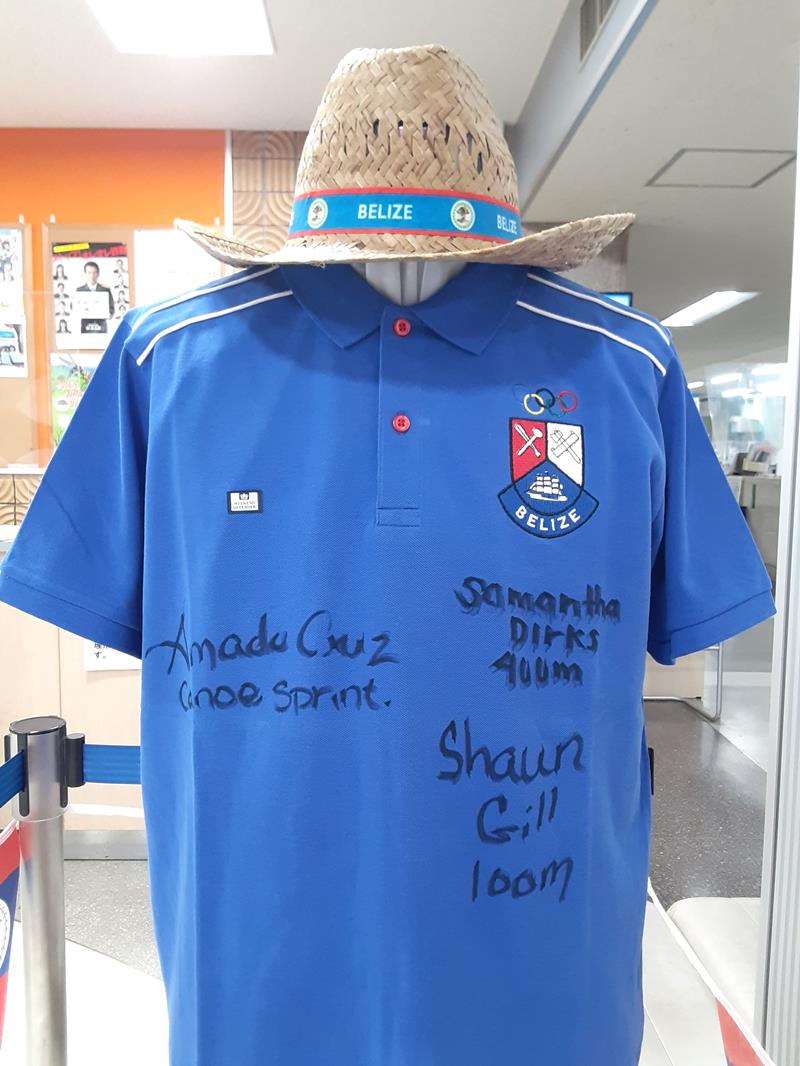 BELIZE
BELIZE
BELIZE
Amado Cruz
Canoe Sprint.
Samantha
Dirks
400m
Shaun
Gill
100m